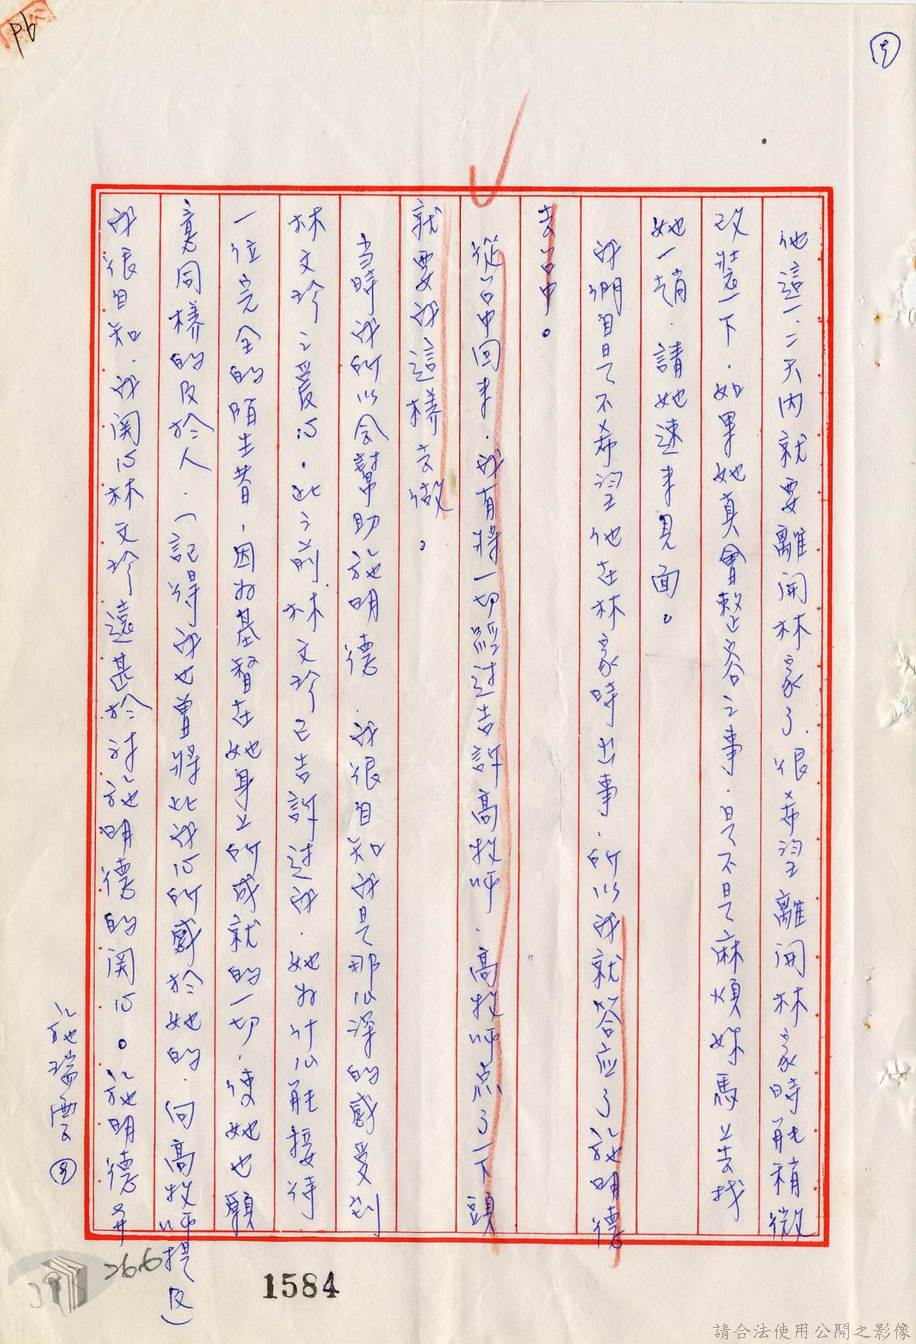 P6
⑨
他這一.二天內就要離開林家了.很希望離開林家時能稍微
改裝一下.如果她真會整容之事.是不是麻煩妳馬上去找
她一趟.請她速來見面。
我們自是不希望他在林家時出事.所以我就答应了施明德
去台中。
從台中回來.我有將一切經过告訴高牧师.高牧师点了一下頭
就要我這樣去做。
当時我所以会幫助施明德.我很自知我是那么深的感受到
林文珍之爱心.此之前.林文珍已告訴过我.她为什么能接待
一位完全的陌生者,因为基督在她身上所成就的一切.使她也願
意同樣的及於人.(記得我也曾將此我心所感於她的.向高牧师提及)
我很自知.我関心林文珍遠甚於对施明德的関心。施明德并
施瑞雲⑨
266
1584
請合法使用公開之影像